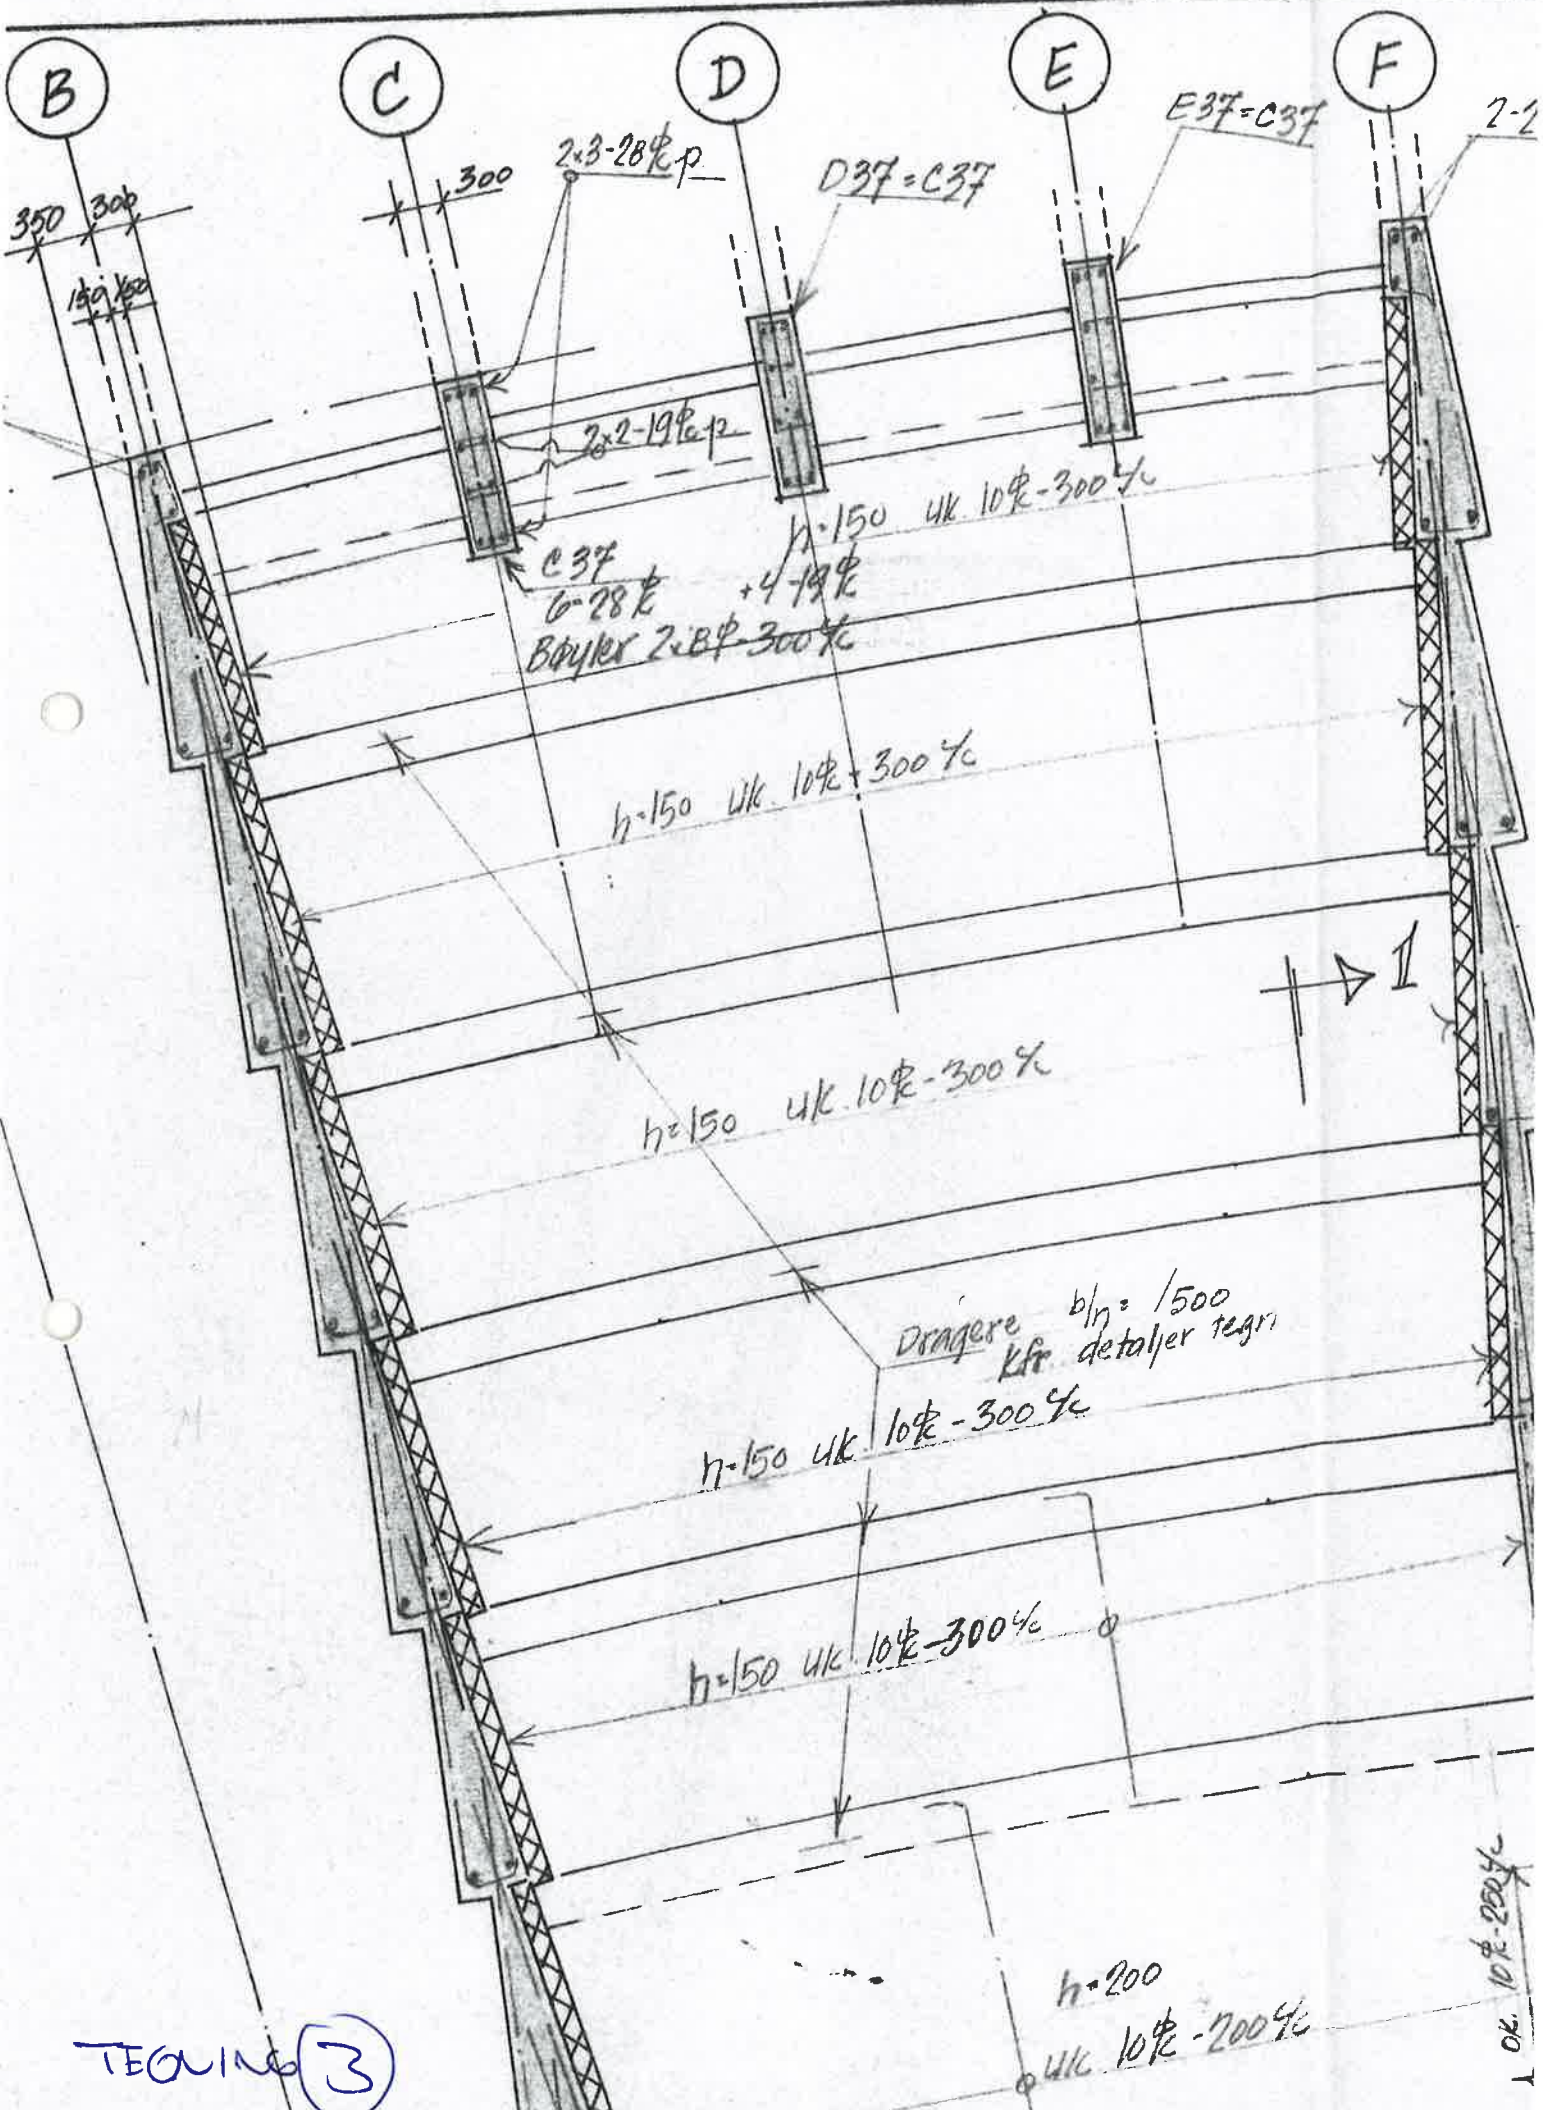 B
C
D
E
F
350
300
150
150
300
2x3-28 ks p
D37=C37
E37=C37
2-2
2x2-19 ks p
C37
6-28 ks +4-19 ks
Bøyler 2x8ø-300 c/c
h=150 uk 10 ks-300 c/c
h=150 uk. 10 ks-300 c/c
1
h=150 uk. 10 ks-300 c/c
Dragere b/h= /500
kfr. detaljer tegn
h=150 uk 10 ks-300 c/c
h=150 uk 10 ks-300 c/c
h=200
uk 10 ks-200 c/c
ok. 10 ks-250 c/c
TEGNING 3